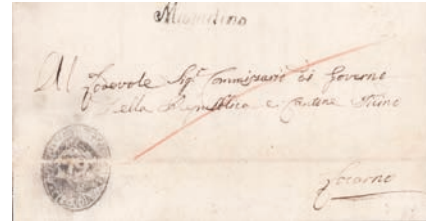 Al Lodevole Sig.r Commissario di Governo
Della Repubblica e Cantone Ticino
Locarno